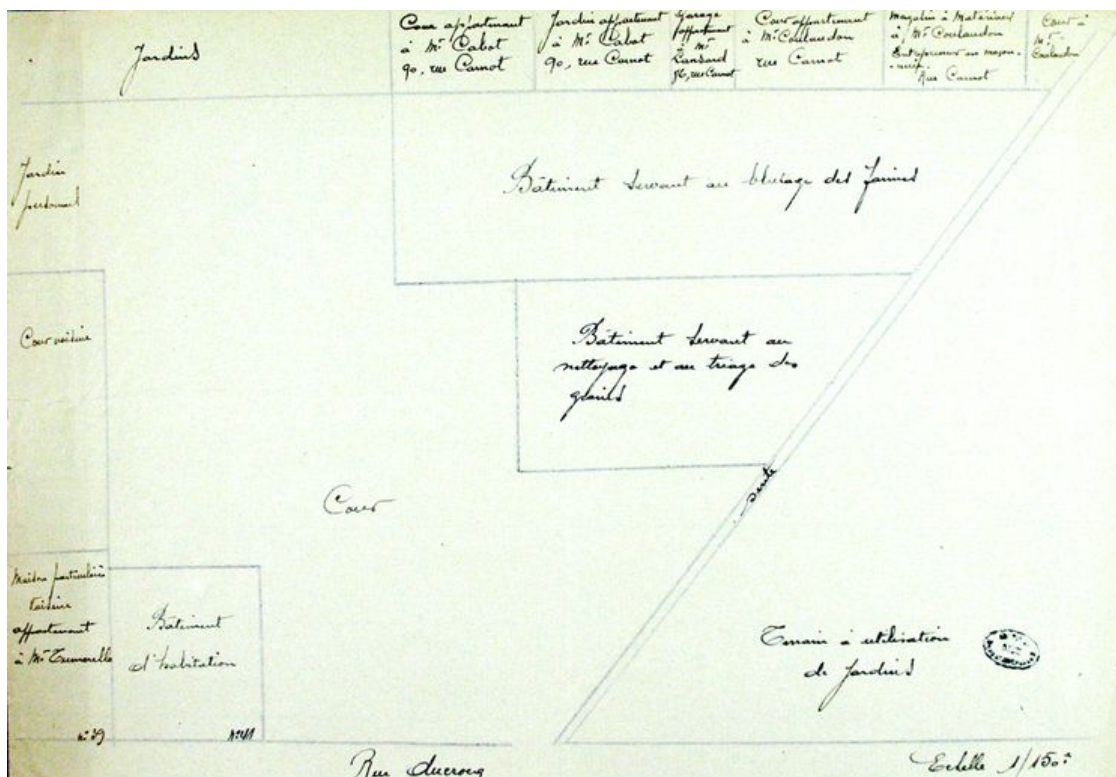 Jardins
Cour appartenant
à Mr Cabot
90, rue Carnot
Jardin appartenant
à Mr Cabot
90, rue Carnot
Garage
appartenant
à Mr
Lansard
rue Carnot
Cour appartenant
à Mr Coulaudon
rue Carnot
Magasin à Matériaux
à Mr Coulaudon
Entrepreneur en maçon-
-nerie
Rue Carnot
Cour à
Mr
Coulaudon
Jardin
personnel
Bâtiment servant au blutage des farines
Cour voisine
Bâtiment servant au
nettoyage et au triage des
grains
sente
Cour
Maison particulière
voisine
appartenant
à Mr
n° 39
Bâtiment
d'habitation
n° 41
Terrain à utilisation
de Jardins
Rue ducrocq
Echelle 1/150e